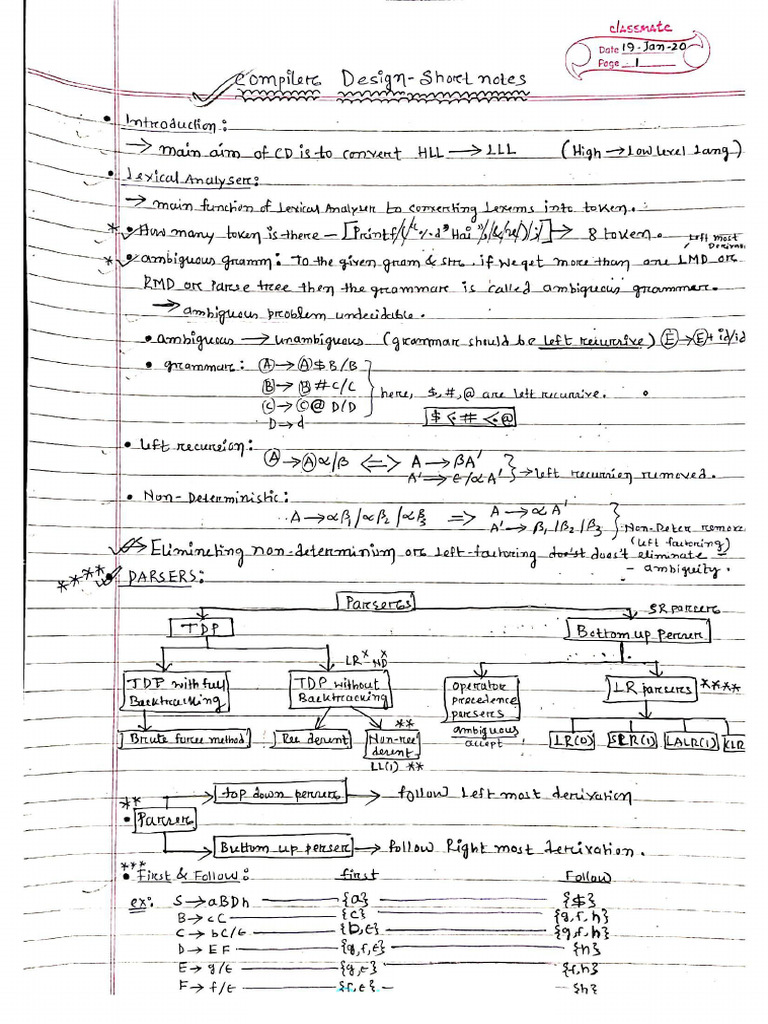 classmate
Date 19-Jan-20
Page 1
Compiler Design-Short notes
• Introduction:
→ main aim of CD is to convert HLL → LLL (High → Low level Lang)
• Lexical Analyser:
→ main function of Lexical Analyser to converting Lexems into token.
* How many token is there – [Printf/(/"%d Hai"/,/&/x/)/;/] → 8 token.
Left most
* ambiguous gramm: To the given gram & str. if we get more than one LMD or
RMD or Parse tree then the grammar is called ambiguous grammar.
→ ambiguous problem undecidable.
• ambiguous → unambiguous (grammar should be left recursive) E → E + id/id
• grammar: A → A $ B / B
B → B # C / C
C → C @ D / D
D → d
here, $, #, @ are left recursive.
$ < # < @
• Left recursion:
A → Aα/β <=> A → βA'
A' → ϵ/αA'
→ left recursion removed.
• Non-Deterministic:
A → αβ1/αβ2/αβ3 => A → αA'
A' → β1/β2/β3
Non-Deter remove
(left factoring)
Elimineting non-determinim or left-factoring does't does't eliminate
– ambiguity.
**** PARSERS:
Parsers
SR parsers
TDP
Bottom up Perser
LR× ND×
TDP with full
Backtracking
TDP without
Backtracking
operator
precedence
parsers
LR parsers ****
ambiguous
accept
Brute force method
Rec decent
Non-rec
decent
**
LL(1) **
LR(0)
SLR(1)
LALR(1)
CLR
**
• Parser
top down perser → follow Left most derivation
Buttom up perser → follow Right most derivation.
***
• First & Follow: first Follow
ex: S → aBDh {a} {$}
B → cC {c} {g,f,h}
C → bC/ϵ {b,ϵ} {g,f,h}
D → EF {g,f,ϵ} {h}
E → g/ϵ {g,ϵ} {f,h}
F → f/ϵ {f,ϵ} {h}